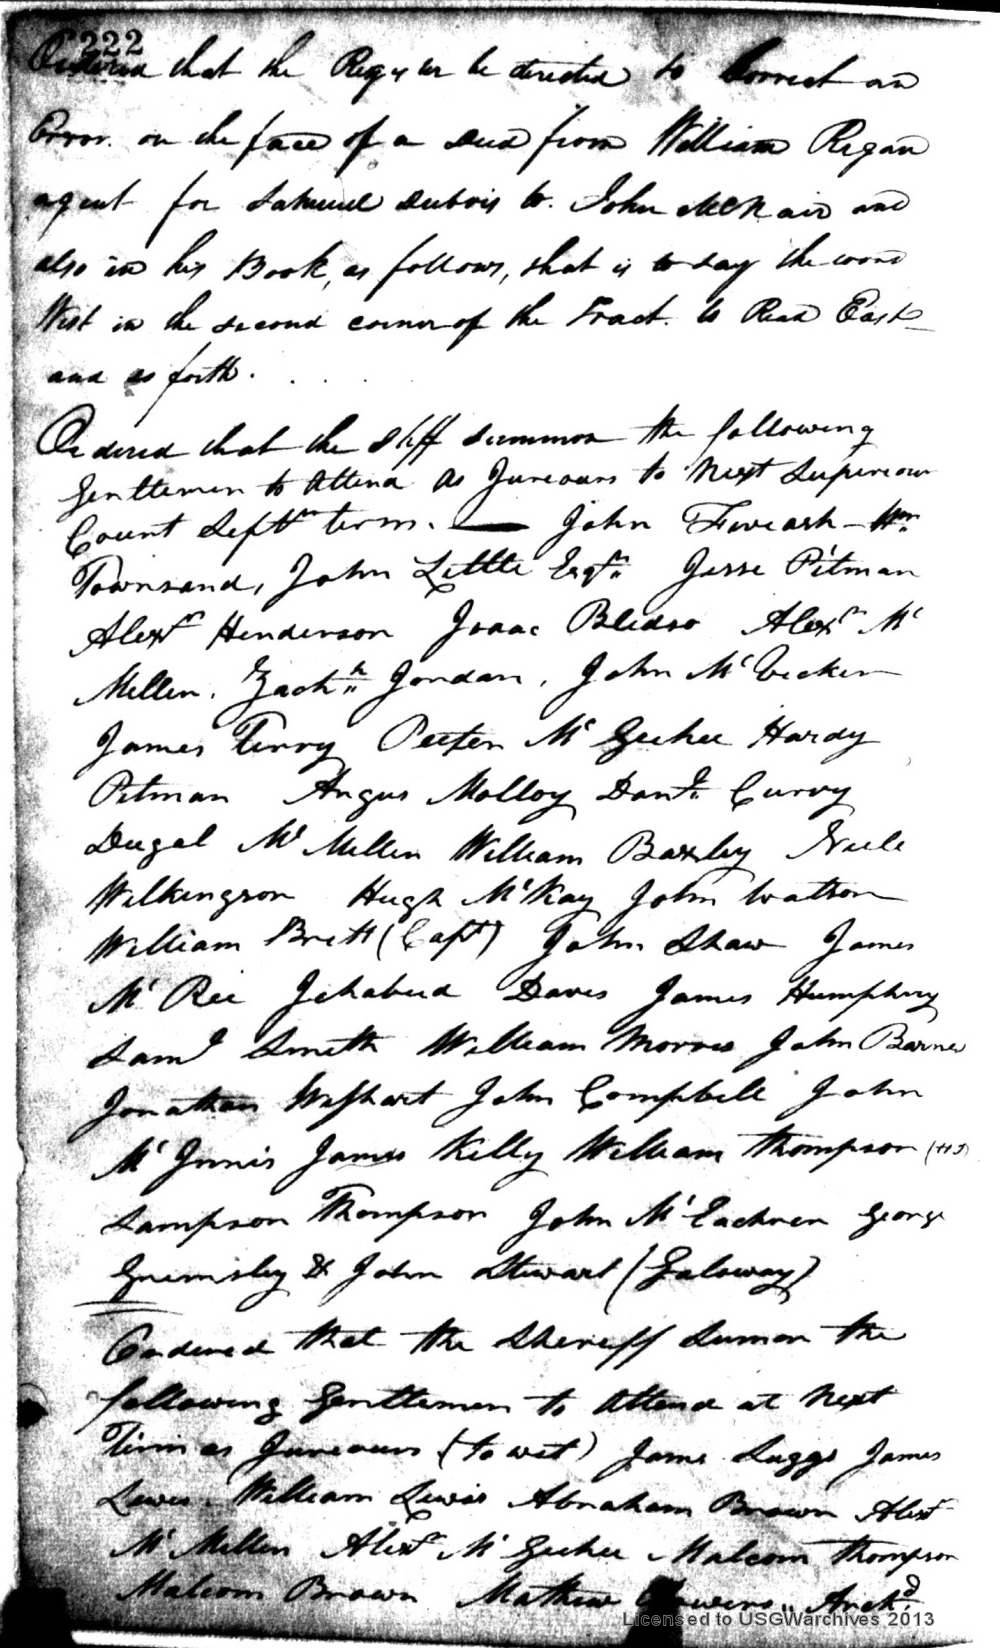 222
Ordered that the Register be directed to Correct an
Error on the face of a Deed from William Regan
agent for Samuel Dubois to John McNair and
also in his Book, as follows, that is to say the word
West in the second corner of the Tract. to Read East
and so forth.
Ordered that the Shff summon the following
Genttemen to Attend as Jureours to Next Supereour
Count Septm term. — John Foweash Wm
Townsend, John Little Esqr Jesse Pitman
Alexr Henderson Isaac Bledso Alexr Mc
Mellin. Zachh Jordan, John McVicker
James Terry Peeter McGeehee Hardy
Pitman Angus Malloy Danl Curry
Dugal McMillin William Baxley Neele
Wilkingson Hugh McKay John Watson
William Britt (Capt) John Shaw James
McRee Ichabud Daves James Humphrey
Saml Smith William Morres John Barnes
Jonathan Wishart John Campbell John
McInnis James Kelly William Thompson
Sampson Thompson John McEachren George
Greimsley & John Stewart (Galoway)
Ordered that the Sheriff Sumon the
following Genttemen to Attend at Next
Term as Jureours (to wit) Jams Suggs James
Lewis William Lewis Abraham Brown Alexr
McMellen Alexr McGeehee Malcom Thompson
Malcom Brown Mathew Archd
Licensed to USGWarchives 2013